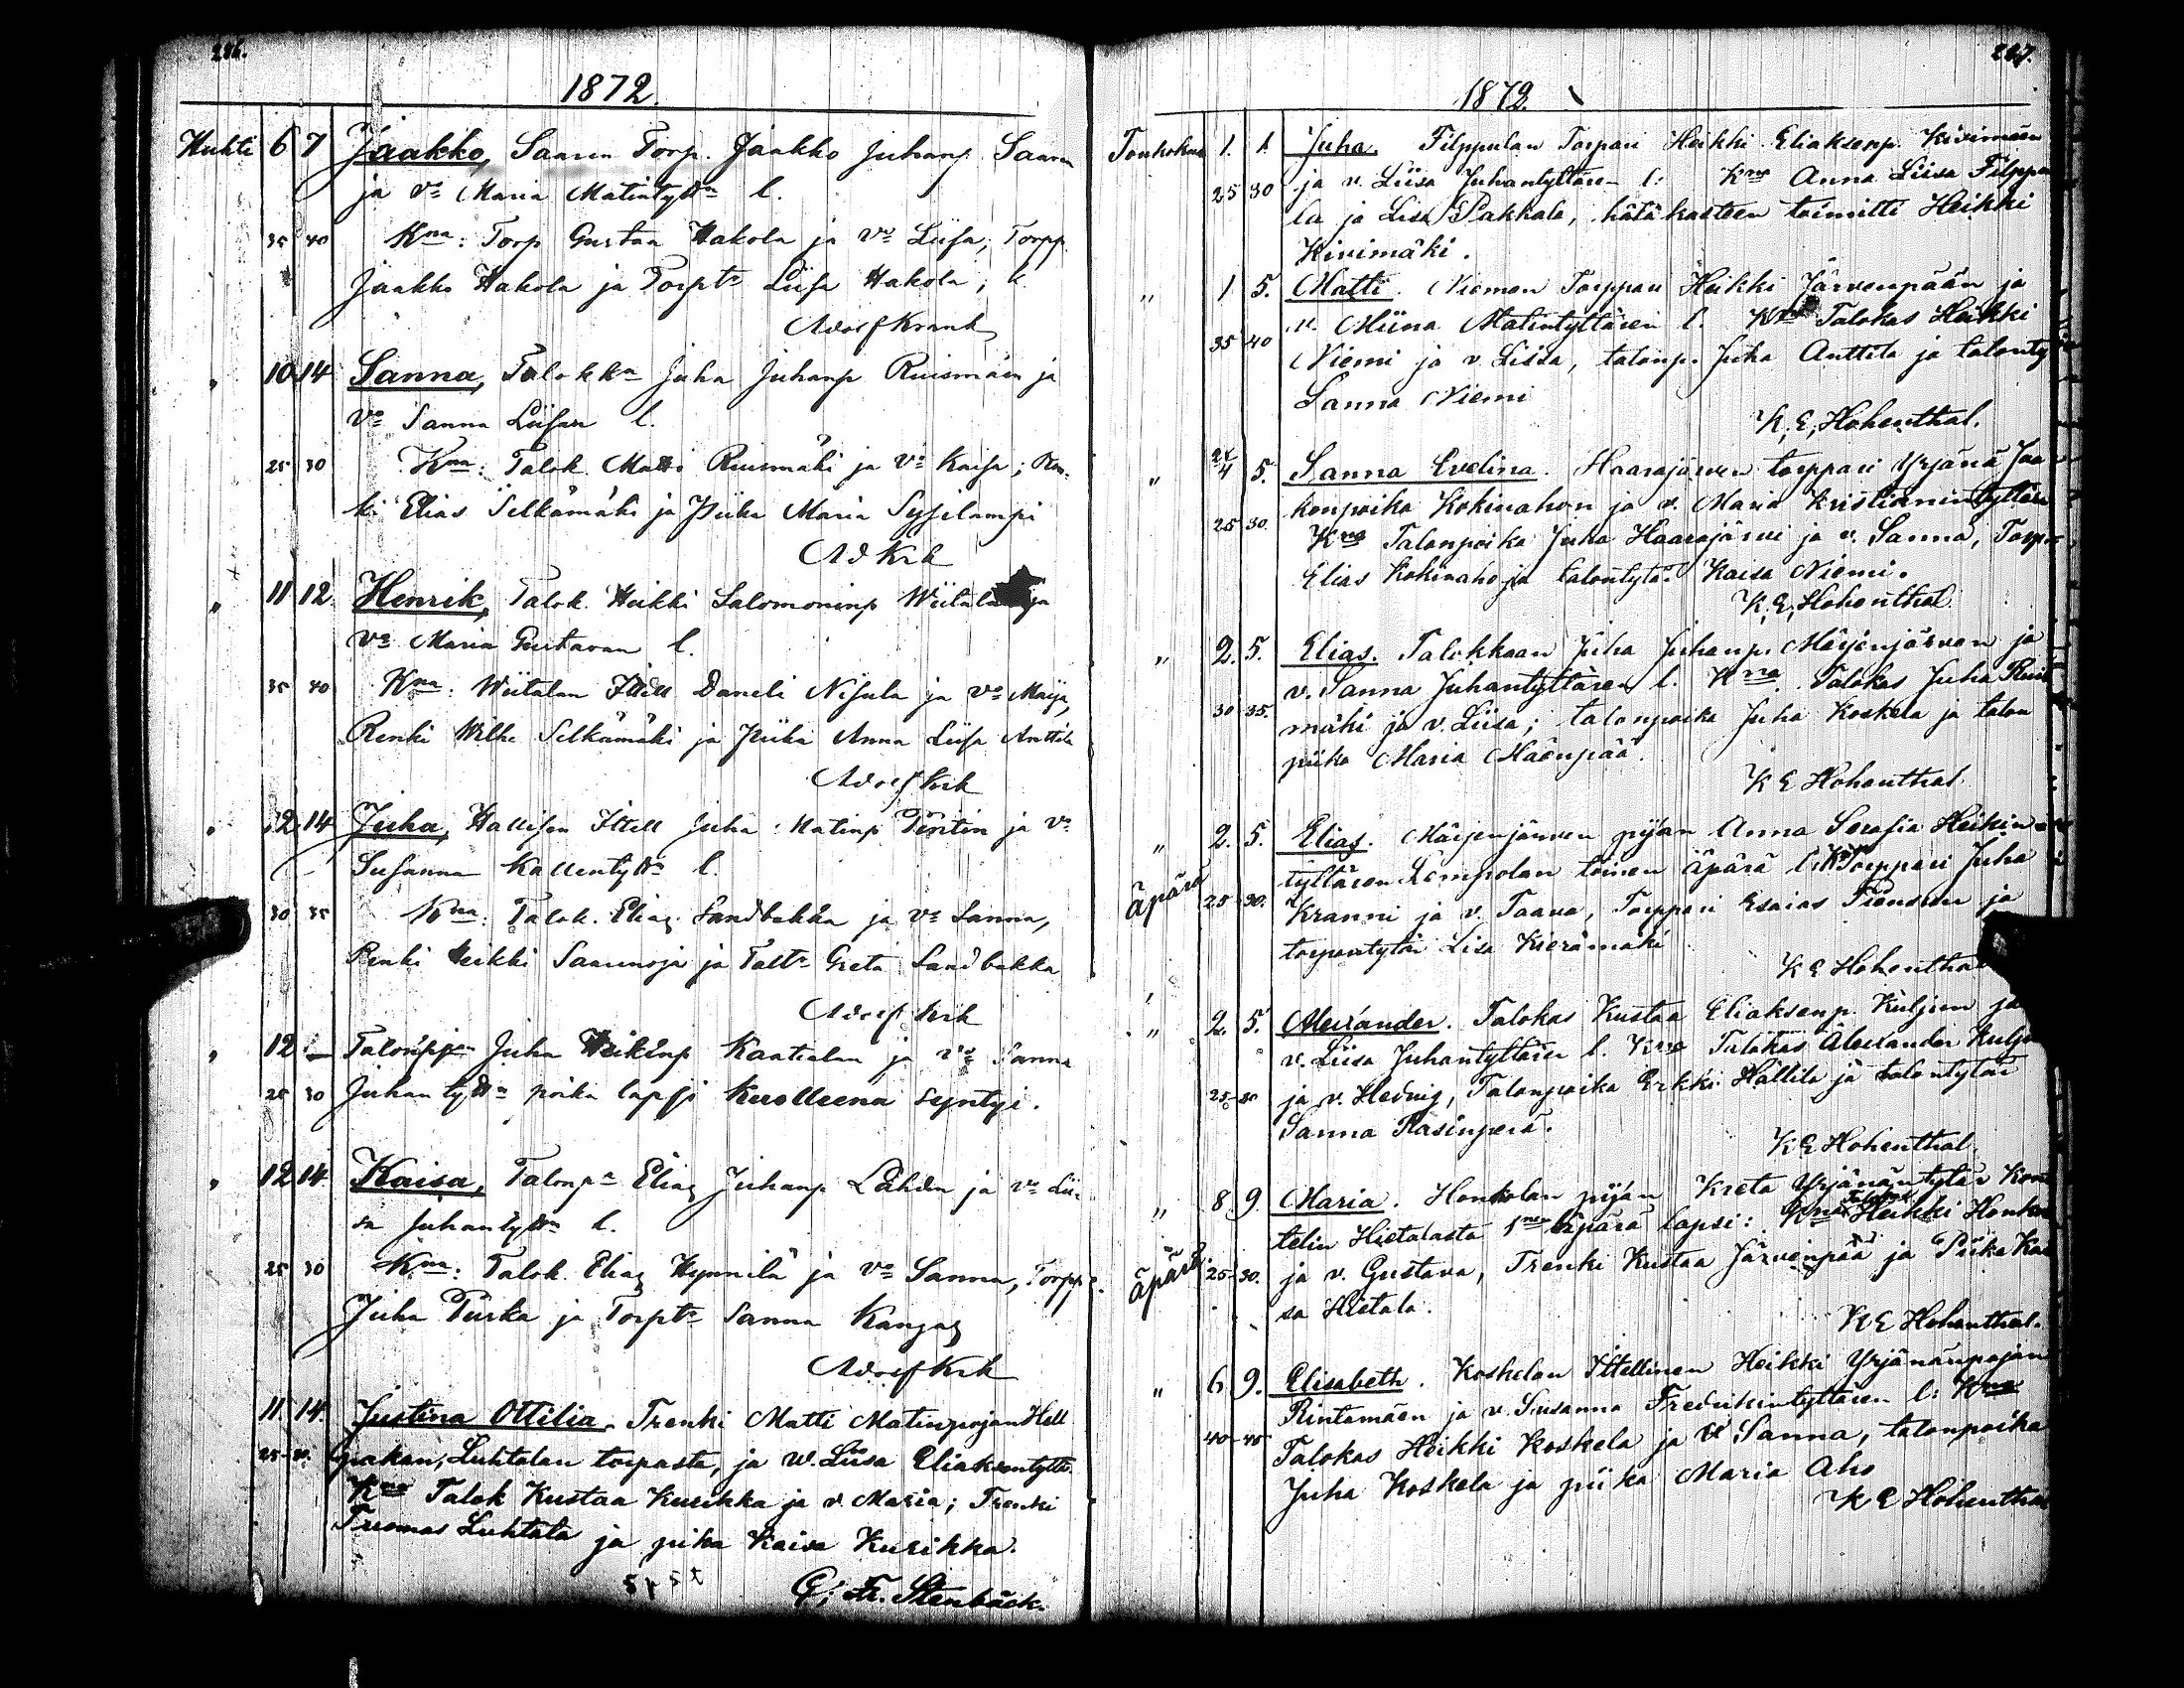 226.
1872.
Huhti 6 7 Jaakko, Saaren Torp. Jaakko Juhanp. Saaren
ja vo Maria Matintyttn l.
35 40 Kna: Torp Gustaa Hakola ja vo Liisa; Torpp.
Jaakko Hakola ja Torpt. Liisa Hakola; k.
Adolf Krank
" 10 14 Sanna, Talokka Juha Juhanp Ruismäen ja
vo Sanna Liisan l.
25 30 Kna: Talok. Matti Ruismäki ja vo Kaisa; Ren-
ki Elias Selkämäki ja Piika Maria Sysilampi
Ad Krk
" 11 12. Henrik, Talok. Heikki Salomoninp Wiitalan ja
vo Maria Gustavan l.
35 40 Kna: Wiitalan Ittell Daneli Nisula ja vo Maija,
Renki Wilhe Selkämäki ja Piika Anna Liisa Anttila
Adolf Krk
" 12 14 Juha, Hallisen Ittell Juha Matinp Peritin ja vo
Susanna Kallentyttn l.
30 35 Kna: Talok. Elias Sandbakka ja vo Sanna,
Renki Heikki Saarinoja ja Talt. Greta Sandbakka
Adolf Krk
" 12 — Talonppn Juha Heikinp Kaatialan ja vo Sanna
25 30 Juhantyttn poika lapsi kuolleena syntyi.
" 12 14. Kaisa, Talonp. Elias Juhanp Lähden ja vo Lii-
sa Juhantyttn l.
25 30 Kna: Talok. Elias Hynnilä ja vo Sanna, Torpp.
Juha Turka ja Torpt. Sanna Kangas
Adolf Krk
11 14. Justina Ottilia. Trenki Matti Matinpojan Hell
25-30. grakan, Luhtalan torpasta, ja w. Liisa Eliaksentytt.
Kna Talok Kustaa Kurikka ja v. Maria; Trenki
Tuomas Luhtala ja piika Kaisa Kurikka.
C. Fr. Stenbäck.
227.
1872.
Toukokuu 1. 1. Juha. Filppulan Torpari Heikki Eliaksenp. Kivimäen
25 30 ja v. Liisa Juhantyttären l: Kna Anna Liisa Filppu
la ja Lisa Pakkala, hätäkasteen toimitti Heikki
Kivimäki.
" 1 5. Matti. Niemen Torppari Heikki Järvenpään ja
35 40 v. Miina Matintyttären l. Kna Talokas Heikki
Niemi ja v. Liisa, talonp. Juha Anttila ja talonty
Sanna Niemi
K. E. Hohenthal.
" 4 5. Sanna Evelina. Haarajärven torppari Yrjänä Jaa
25 30. konpoika Kokinahon ja v. Maria Kristianintyttären
Kna Talonpoika Juha Haarajärvi ja v. Sanna, Torp.
Elias Kokinaho ja talontytär Kaisa Niemi.
K. E. Hohenthal
" 2. 5. Elias. Talokkaan Juha Juhanp. Märjenjärven ja
30 35. v. Sanna Juhantyttären l. Kna. Talokas Juha Ruis
mäki ja v. Liisa; talonpoika Juha Koskela ja talon
piika Maria Mäenpää.
K E Hohenthal
" 2. 5. Elias. Märjenjärven piijan Anna Serafia Heikin-
äpärä 25-30. tyttären Lempolan toinen äpärä l: Kna Torppari Juha
Kranni ja v. Taava, Torppari Esaias Tiensuu ja
torpantytär Lisa Kierämäki
K E Hohenthal
" 2. 5. Alexander. Talokas Kustaa Eliaksenp. Kuljun ja
v. Liisa Juhantyttären l. Kna Talokas Alexander Kulju
25-30 ja v. Hedvig, Talonpoika Erkki Hallila ja talontytär
Sanna Rasinperä.
K E Hohenthal.
" 8. 9. Maria. Honkolan piijan Kreta Yrjänäntytär Kon
telin Hietalasta 1nen äpärä lapsi: Kna Talokas Heikki Honkola
äpärä 25-30. ja v. Gustava, Trenki Kustaa Järvenpää ja Piika Kai
sa Hietala.
K E Hohenthal.
" 6 9. Elisabeth. Koskelan Ittellinen Heikki Yrjänänpojan
Rintamäen ja v. Susanna Fredrikintyttären l: Kna
40-45 Talokas Heikki Koskela ja v. Sanna, talonpoika
Juha Koskela ja piika Maria Aho
K E Hohenthal